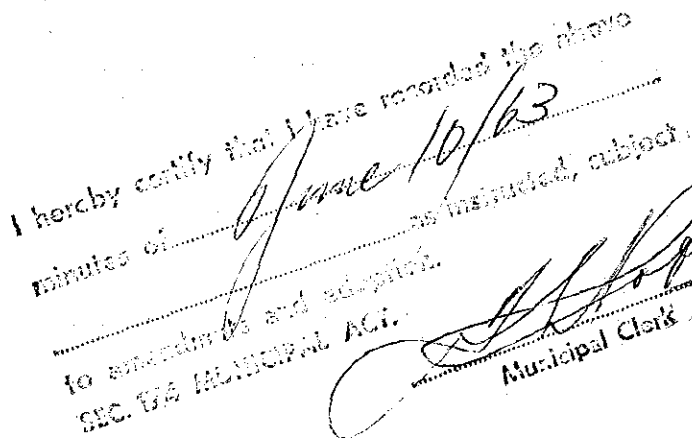 I hereby certify that I have recorded the above
minutes of June 10/63
as instructed, subject
to amendments and adoption.
SEC. MUNICIPAL ACT.
Municipal Clerk